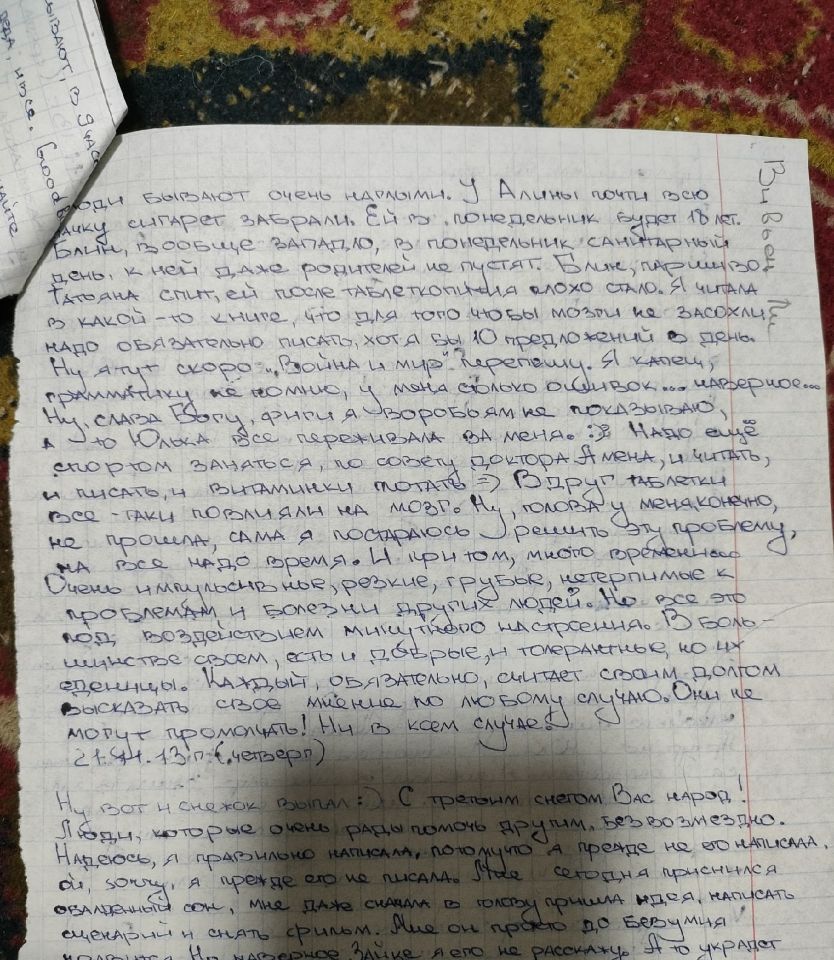 бывают, в 9 час
ниже. Good
Вивьен Ли
Люди бывают очень наглыми. У Алины почти всю
пачку сигарет забрали. Ей в понедельник будет 18 лет.
Блин, вообще западло, в понедельник санитарный
день. К ней даже родителей не пустят. Блин, паршиво
Татьяна спит, ей после таблеткопития плохо стало. Я читала
в какой-то книге, что для того чтобы мозги не засохли,
надо обязательно писать, хотя бы 10 предложений в день.
Ну я тут скоро "Война и мир" перепешу. Я капец,
грамматику не помню, у меня столько ошибок... наверное...
Ну, слава Богу, фиги я воробьям не показываю,
а то Юлька все переживала за меня. Надо ещё
спортом заняться, по совету доктора Амена, и читать,
и писать, и витаминки глотать =) Вдруг таблетки
все-таки повлияли на мозг. Ну, голова у меня, конечно,
не прошла, сама я постараюсь решить эту проблему,
на все надо время. И при том, много временно
Очень импульсивные, резкие, грубые, нетерпимые к
проблемам и болезни других людей. Но все это
под воздействием минутного настроения. В боль-
шинстве своем, есть и добрые, и толерантные, но их
еденицы. Каждый, обязательно, считает своим долгом
высказать свое мнение по любому случаю. Они не
могут промолчать! Ни в коем случае!
21.11.13 г. (четверг)
Ну вот и снежок выпал :) С третьим снегом Вас народ!
Люди, которые очень рады помочь другим, безвозмездно.
Надеюсь, я правильно написала, потому что я прежде не его написала,
ой, sorry, я прежде его не писала. Мне сегодня приснился
обалденный сон, мне даже сначала в голову пришла идея, написать
сценарий и снять фильм. Мне он просто до безумия
Но наверное Зайке я его не расскажу. А то украдет